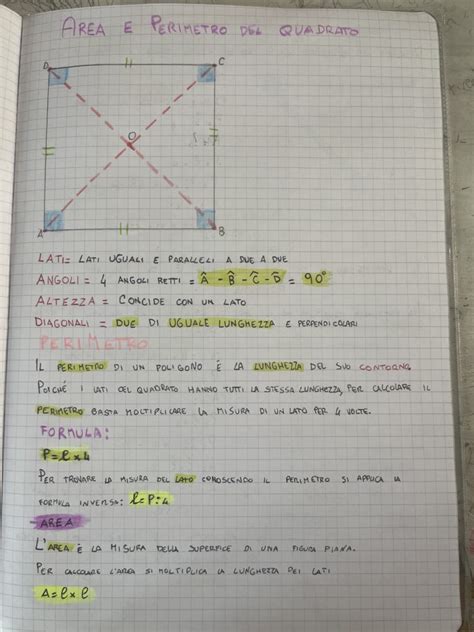 AREA E PERIMETRO DEL QUADRATO
D C
O
A B
LATI= LATI UGUALI E PARALLELI A DUE A DUE
ANGOLI = 4 ANGOLI RETTI = Â - B̂ - Ĉ - D̂ = 90°
ALTEZZA = COINCIDE CON UN LATO
DIAGONALI = DUE DI UGUALE LUNGHEZZA E PERPENDICOLARI
PERIMETRO
IL PERIMETRO DI UN POLIGONO È LA LUNGHEZZA DEL SUO CONTORNO
POICHÉ I LATI DEL QUADRATO HANNO TUTTI LA STESSA LUNGHEZZA, PER CALCOLARE IL
PERIMETRO BASTA MOLTIPLICARE LA MISURA DI UN LATO PER 4 VOLTE.
FORMULA:
P=l×4
PER TROVARE LA MISURA DEL LATO CONOSCENDO IL PERIMETRO SI APPLICA LA
FORMULA INVERSA: l=P:4
- AREA
L'AREA È LA MISURA DELLA SUPERFICE DI UNA FIGURA PIANA.
PER CALCOLARE L'AREA SI MOLTIPLICA LA LUNGHEZZA DEI LATI
A=l×l